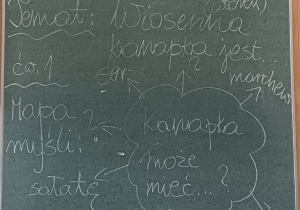 (wtorek)
Temat: Wiosenna
kanapka jest...
ser
?
marchew
ćw. 1
Mapa
myśli:
?
kanapka
może
mieć...?
sałatę